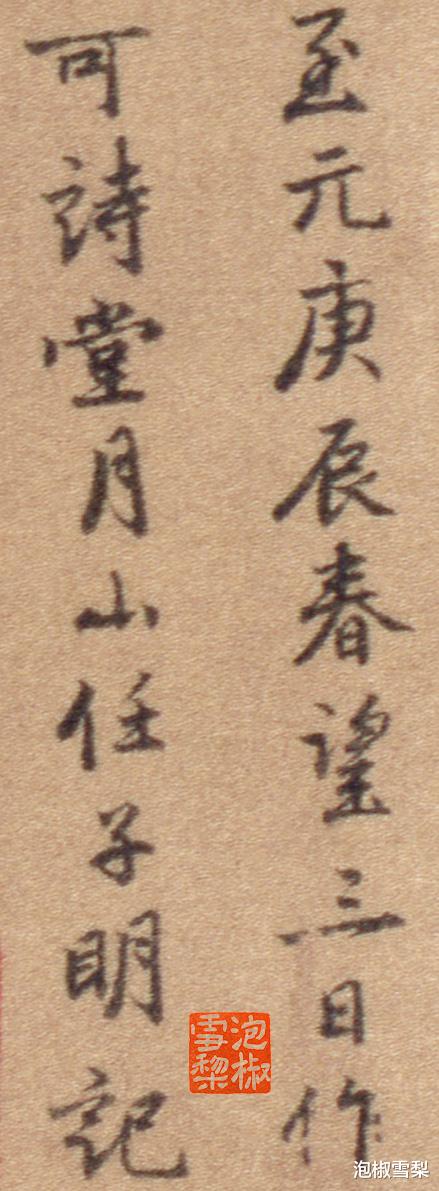 至元庚辰春望三日作
可詩堂月山任子明記
泡椒
雪梨
泡椒雪梨